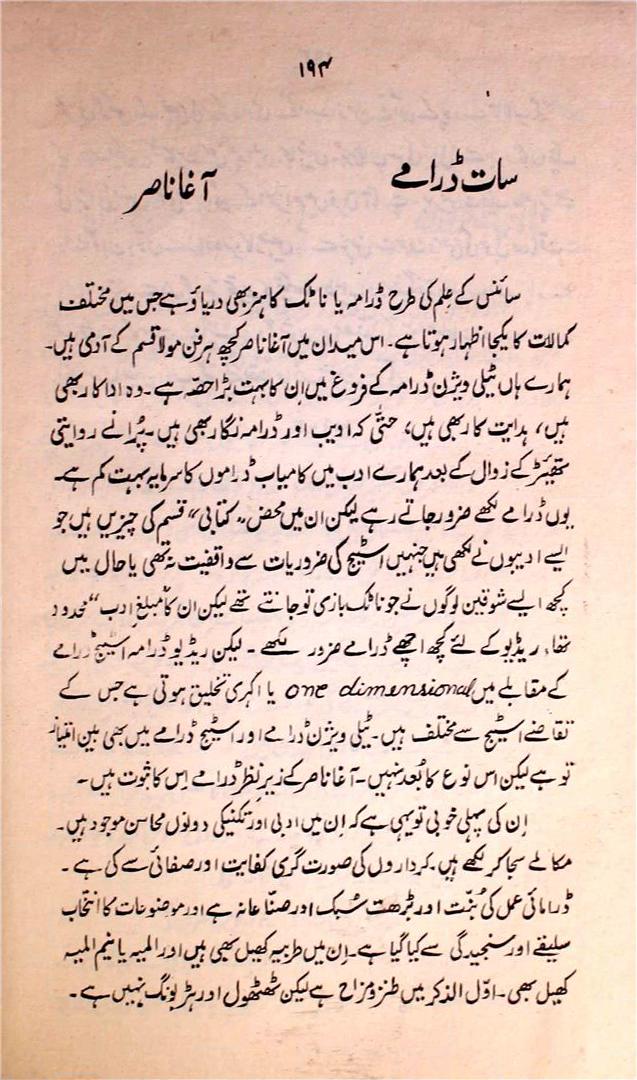 ۱۹۴
سات ڈرامے
آغا ناصر
سائنس کے علم کی طرح ڈرامہ یا ناٹک کا ہنر بھی دریاؤ ہے جس میں مختلف
کمالات کا یکجا اظہار ہوتا ہے۔ اس میدان میں آغا ناصر کچھ ہر فن مولا قسم کے آدمی ہیں۔
ہمارے ہاں ٹیلی ویژن ڈرامہ کے فروغ میں اِن کا بہت بڑا حصّہ ہے۔ وہ اداکار بھی
ہیں، ہدایت کار بھی ہیں، حتیٰ کہ ادیب اور ڈرامہ نگار بھی ہیں۔ پُرانے روایتی
تھیٹر کے زوال کے بعد ہمارے ادب میں کامیاب ڈراموں کا سرمایہ بہت کم ہے۔
یوں ڈرامے لکھے ضرور جاتے رہے لیکن ان میں محض "کتابی" قسم کی چیزیں ہیں جو
ایسے ادیبوں نے لکھی ہیں جنہیں اسٹیج کی ضروریات سے واقفیت نہ تھی یا حال میں
کچھ ایسے شوقین لوگوں نے جو ناٹک بازی تو جانتے تھے لیکن ان کا مبلغِ ادب" محدود
تھا، ریڈیو کے لئے کچھ اچھے ڈرامے ضرور لکھے۔ لیکن ریڈیو ڈرامہ اسٹیج ڈرامے
کے مقابلے میں one dimensional یا اکہری تخلیق ہوتی ہے جس کے
تقاضے اسٹیج سے مختلف ہیں۔ ٹیلی ویژن ڈرامے اور اسٹیج ڈرامے میں بھی بین امتیاز
تو ہے لیکن اس نوع کا بُعد نہیں۔ آغا ناصر کے زیرِ نظر ڈرامے اِس کا ثبوت ہیں۔
اِن کی پہلی خوبی تو یہی ہے کہ اِن میں ادبی اور تکنیکی دونوں محاسن موجود ہیں۔
مکالمے سجا کر لکھے ہیں۔ کرداروں کی صورت گری کفایت اور صفائی سے کی ہے۔
ڈرامائی عمل کی بُنت اور بڑھت سُبک اور صنّاعانہ ہے اور موضوعات کا انتخاب
سلیقے اور سنجیدگی سے کیا گیا ہے۔ اِن میں طربیہ کھیل بھی ہیں اور المیہ یا نیم المیہ
کھیل بھی۔ اوّل الذکر میں طنز و مزاح ہے لیکن ٹھٹھول اور ہڑبونگ نہیں ہے۔